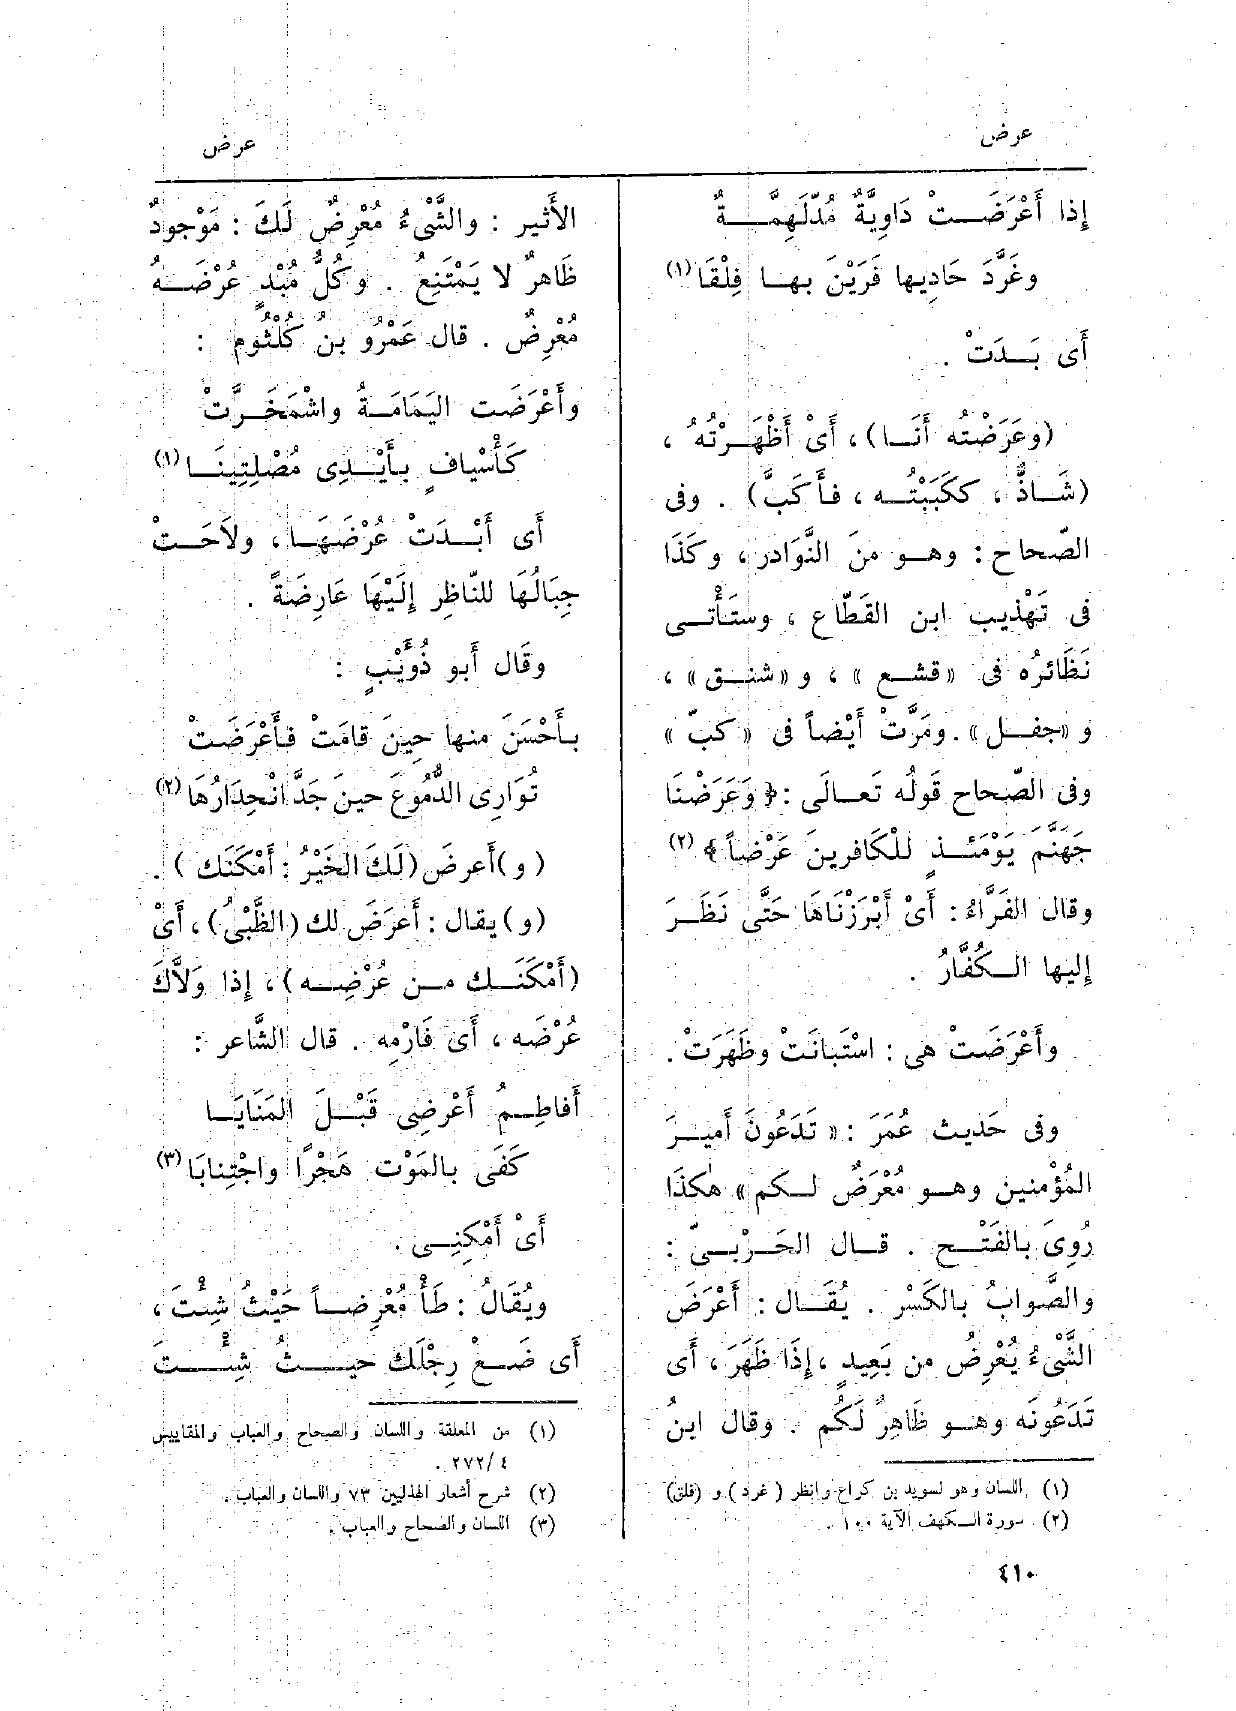 عرض
إذا أَعْرَضَـتْ دَاوِيَّةٌ مُدْلَهِمَّـةٌ
وغَرَّدَ حَادِيها فَرَيْنَ بهـا فِلْقَا (١)
أَى بَـدَتْ .
(وعَرَضْتُه أَنَـا)، أَىْ أَظْهَـرْتُه ،
(شَـاذٌّ ، ككَبَبْتُـه ، فأَكَبَّ) . وفى
الصّحاح : وهـو منَ النَّوَادر ، وكَذَا
فى تَهْذيب ابن القَطَّاع ، وستَأْتـى
نَظَائرُه فى «قشـع » ، و «شنـق » ،
و «جفـل» . ومَرَّتْ أَيْضاً فى « كبّ »
وفى الصّحاح قَولُه تَعـالَى : ﴿ وَعَرَضْنَا
جَهَنَّم يَوْمَئـذٍ للْكَافرينَ عَرْضاً ﴾ (٢)
وقال الفَرَّاءُ : أَىْ أَبْرَزْنَاهَا حَتَّى نَظَـرَ
إليها الـكُفَّارُ .
وأَعْرَضَتْ هى : اسْتَبانَتْ وظَهَرَتْ .
وفى حَديث عُمَرَ : « تَدَعُونَ أَميـرَ
المُؤْمنين وهـو مُعْرَضٌ لـكم » هٰكَذَا
رُوِىَ بالفَتْـح . قـال الحَرْبـىّ :
والصَّوابُ بالكَسْر . يُقَـال : أَعْرَضَ
الشَّىءُ يُعْرِضُ من بَعِيدٍ ، إذَا ظَهَرَ ، أَى
تَدَعُونَه وهـو ظَاهِرٌ لَكُم . وقال ابنُ
(١) اللسان وهو لسويد بن كراع وانظر ( غرد ) و (فلق)
(٢) سورة الـكهف الآية ١٠٠ .
عرض
الأَثير : والشَّىْءُ مُعْرِضٌ لَكَ : مَوْجودٌ
ظَاهرٌ لا يَمْتَنِعُ . وكُلُّ مُبْدٍ عُرْضَـهُ
مُعْرِضٌ . قال عَمْرُو بنُ كُلْثُومٍ :
وأَعْرَضَت اليَمَامَـةُ واشْمَخَـرَّتْ
كَأَسْيافٍ بأَيْـدِى مُصْلِتِينَـا (١)
أَى أَبْـدَتْ عُرْضَهَـا ، ولاَحَـتْ
جِبَالُهَا للنّاظِر إِلَيْهَا عَارِضَةً .
وقَال أَبو ذُؤَيْبٍ :
بأَحْسَنَ منها حِينَ قامَتْ فأَعْرَضَتْ
تُوَارِى الدُّمُوعَ حينَ جَدَّ انْحِدَارُهَا (٢)
( و ) أعرضَ (لَكَ الخَيْرُ : أَمْكَنَك ) .
(و) يقال : أَعرَضَ لك (الظَّبْىُ) ، أَىْ
(أَمْكَنَـك مـن عُرْضِـه) ، إذا وَلاَّكَ
عُرْضَه ، أَى فَارْمِه . قال الشَّاعر :
أَفاطِـمُ أَعْرِضِى قَبْـلَ المَنَايَـا
كَفَى بالمَوْت هَجْرًا واجْتِنابَا (٣)
أَىْ أَمْكِنِـى .
ويُقَالُ : طَأْ مُعْرِضـاً حَيْثُ شِئْـتَ ،
أَى ضَـعْ رِجْلَك حيـثُ شِئْـتَ
(١) من المعلقة واللسان والصحاح والعباب والمقاييس
٤ /٢٧٢ .
(٢) شرح أشعار الهذليين ٧٣ واللسان والعباب .
(٣) اللسان والصحاح والعباب .
٤١٠